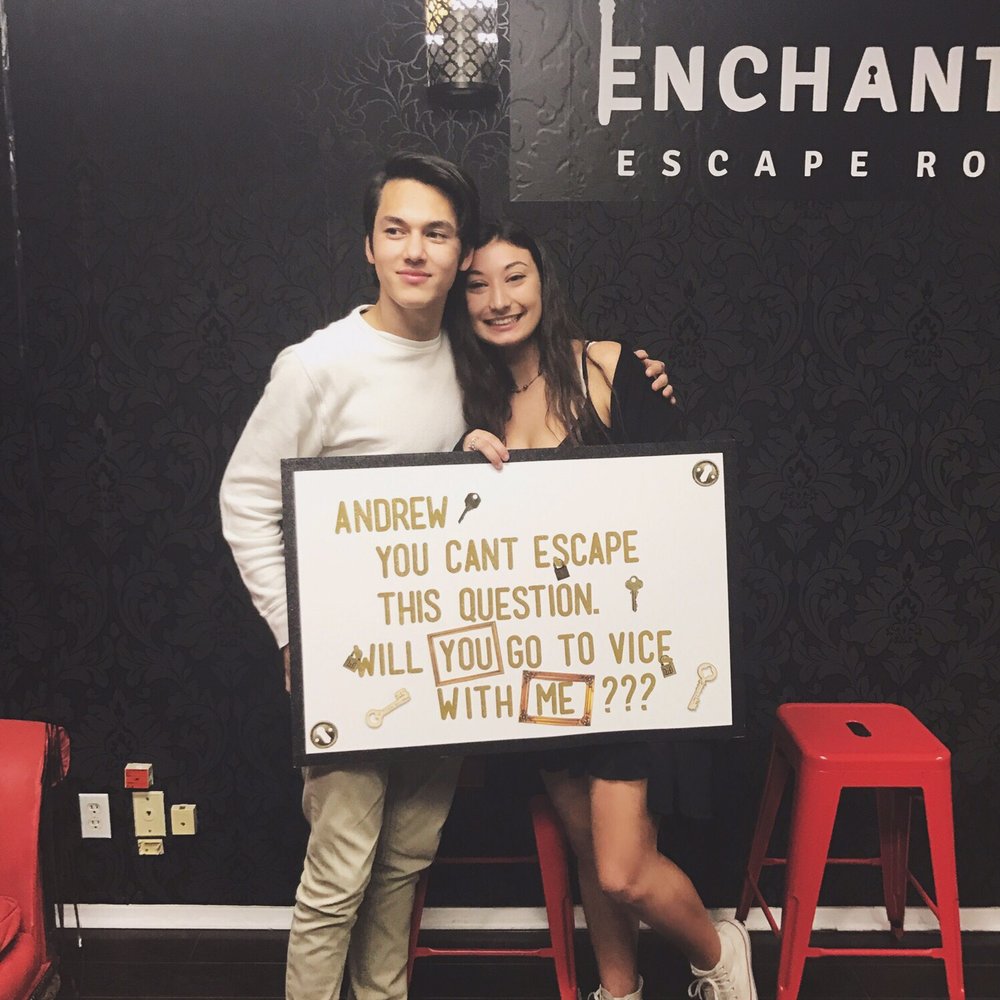 ENCHANT
ESCAPE RO
ANDREW
YOU CANT ESCAPE
THIS QUESTION.
WILL YOU GO TO VICE
WITH ME ???